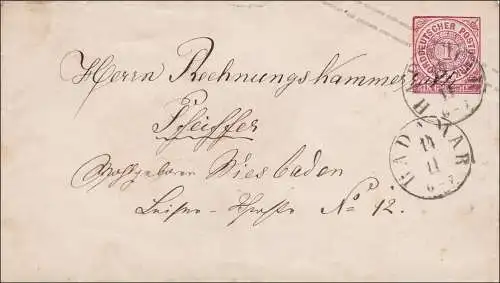 NORDDEUTSCHER POSTBEZIRK
1
Herrn Rechnungskammerrath
Pfeiffer
Wohlgeboren Wiesbaden
Louisen-Straße No 12.
HADAMAR
14
11
6-7